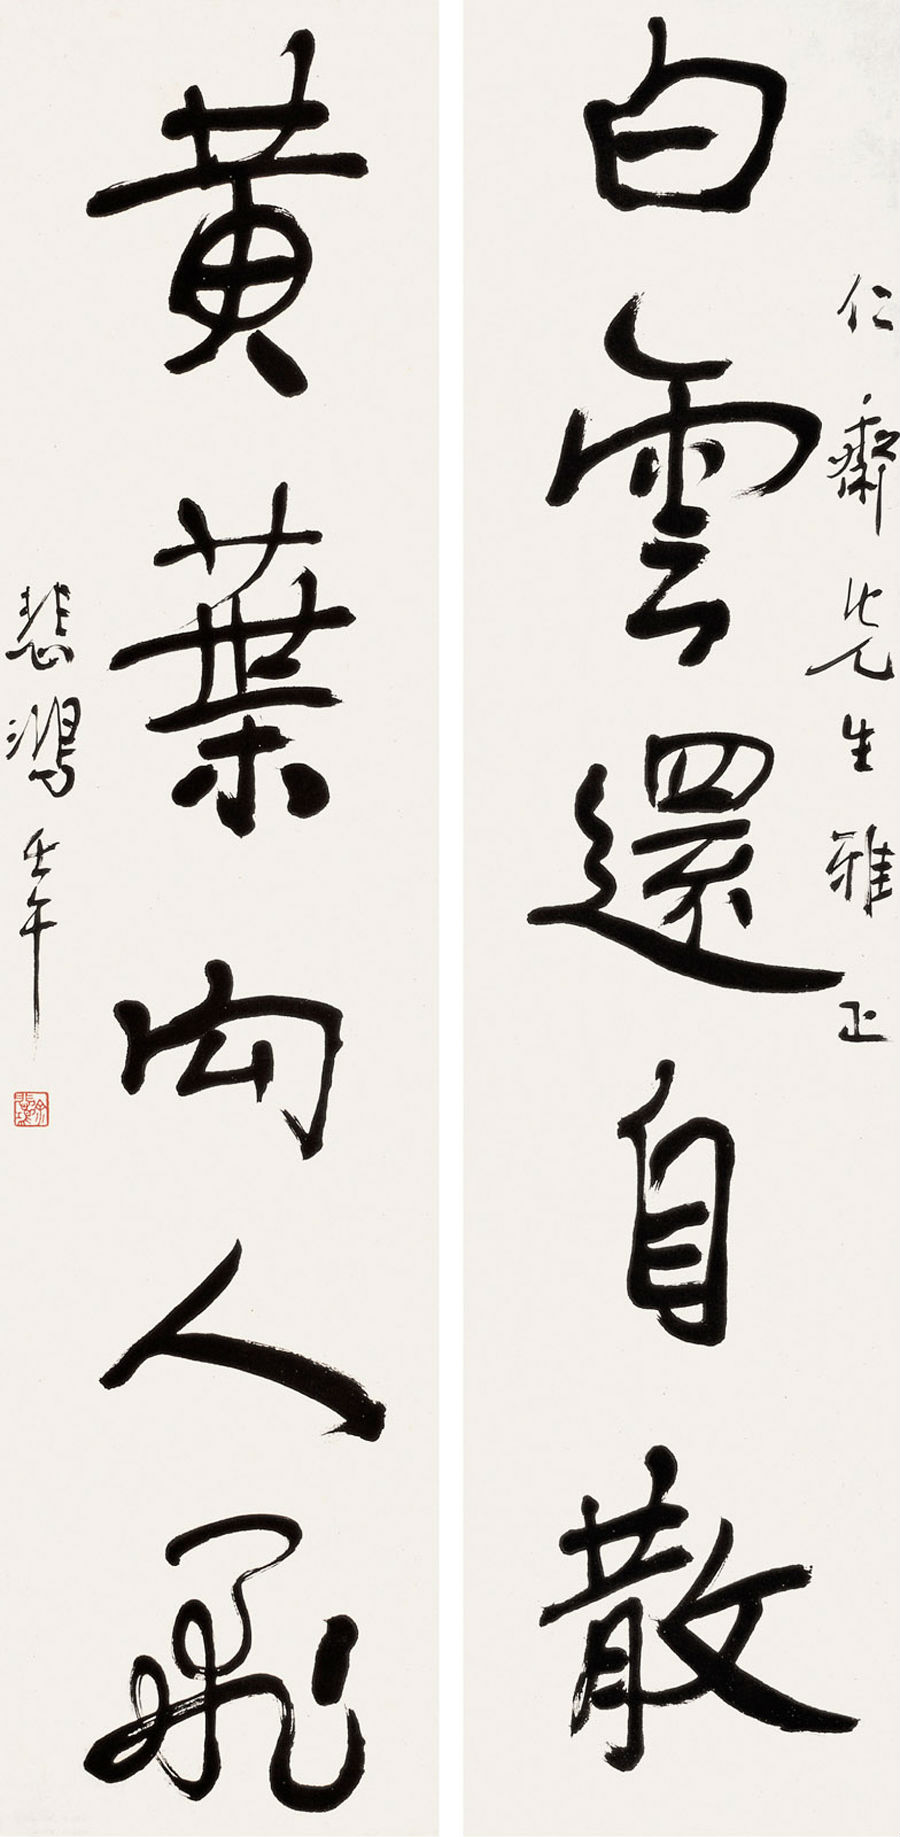 仁齋先生雅正
白雲還自散
黃葉向人飛
悲鴻 壬午